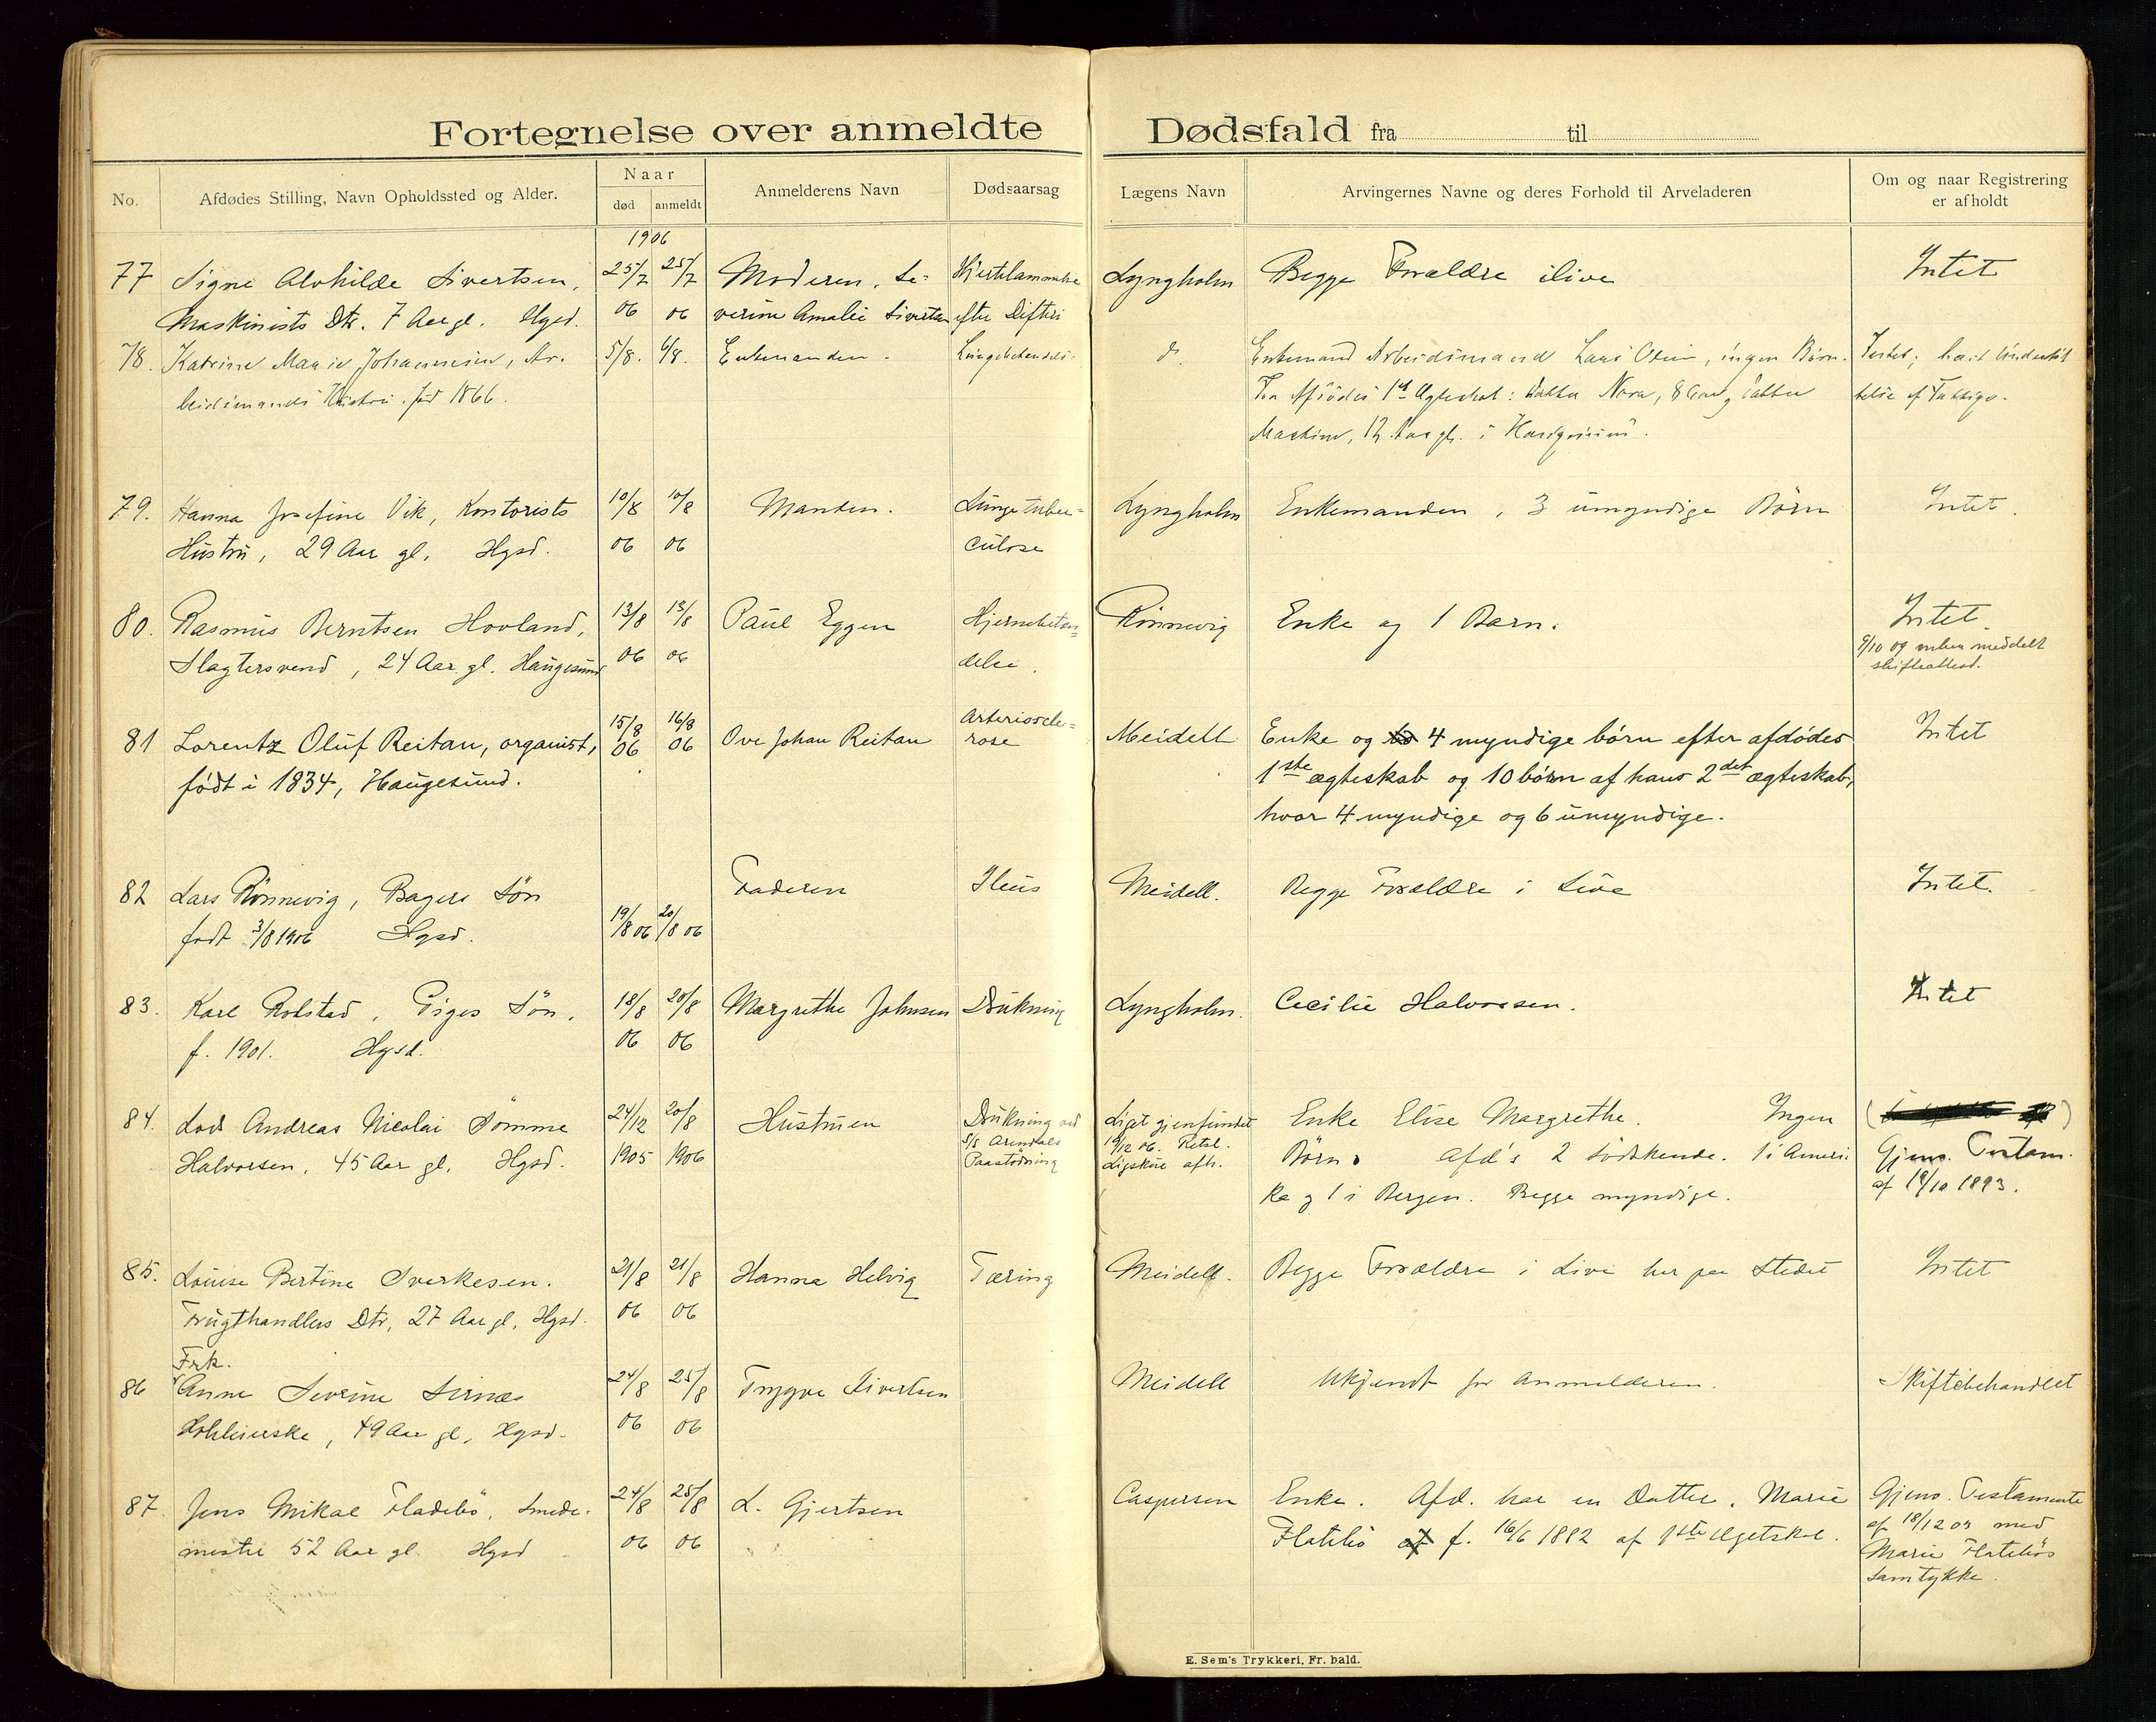 Fortegnelse over anmeldte Dødsfald fra til
No. Afdødes Stilling, Navn Opholdssted og Alder. Naar Anmelderens Navn Dødsaarsag Lægens Navn Arvingernes Navne og deres Forhold til Arveladeren Om og naar Registrering
død anmeldt er afholdt
1906
77 Signe Alvhilde Sivertsen, 25/7 25/7 Moderen, Se- Hjertelammelse Lyngholm Begge Forældre ilive Intet
Maskinists Dtr. 7 Aar gl. Hgsd. 06 06 verine Amalie Sivertsen efter Difteri
78. Katrine Marie Johannesen, Ar- 5/8. 6/8. Enkemanden. Lungebetændelse. do. Enkemand Arbeidsmand Lars Olsen, ingen Børn. Intet;
beidsmands Hustru. født 1866. Fra Afdødes 1st Ægteskab: Datter Nora, 8 Aar, Datter
Martine, 12 Aar gl. i Haugesund.
79. Hanna Josefine Vik, Kontorists 10/8 10/8 Manden. Lungetuber- Lyngholm Enkemanden, 3 umyndige Børn Intet.
Hustru, 29 Aar gl. Hgsd. 06 06 culose
80. Rasmus Berntsen Hovland, 13/8 13/8 Paul Eggen Hjernebetæn- Rönnevig Enke og 1 Barn. Intet.
Slagtersvend, 24 Aar gl. Haugesund 06 06 delse. 9/10 09 enken meddelt
skifteattest.
81 Lorentz Oluf Reitan, organist, 15/8 16/8 Ove Johan Reitan Arterioscle- Meidell Enke og 4 myndige børn efter afdødes Intet
født i 1834, Haugesund. 06 06 rose 1ste ægteskab og 10 børn af hans 2det ægteskab,
hvor 4 myndige og 6 umyndige.
82 Lars Rönnevig, Bagers Sön Faderen Ileus Meidell. Begge Forældre i Live Intet.
født 3/8 1906 Hgsd. 19/8 06 20/8 06
83. Karl Rolstad, Piges Sön, 18/8 20/8 Margrethe Johnsen Drukning Lyngholm. Cecilie Halvorsen. Intet
f. 1901. Hgsd. 06 06
84. Lods Andreas Nicolai Sömme 24/12 20/8 Hustruen Drukning ved Liget gjenfundet Enke Elise Margrethe. Ingen
Halvorsen, 45 Aar gl. Hgsd. 1905 1906 S/S Arendals Paastödning Ligskue afh. Börn. Afd's 2 Södskende. 1 i Ameri- Gjens. Testam.
ka og 1 i Bergen. Begge myndige. af 19/10 1893.
85. Louise Bertine Sverkesen. 21/8 21/8 Hanna Helvig Tæring Meidell. Begge Forældre i Live her paa Stedet Intet
Frugthandlers Dtr, 27 Aar gl, Hgsd. 06 06
Frk.
86 Anne Severine Sirnæs 24/8 25/8 Trygve Sivertsen Meidell Ukjendt for Anmelderen. Skiftebehandlet
49 Aar gl, Hgsd. 06 06
87. Jens Mikal Fladebö, Smede- 24/8 25/8 L. Gjertsen Caspersen Enke. Afd. har en Datter, Marie Gjens. Testamente
mester 52 Aar gl. Hgsd 06 06 Flatebö f. 16/6 1882 af 1ste Ægteskab. af 18/12 03 med
Marie Flatebös
Samtykke.
E. Sem's Trykkeri, Fr. hald.